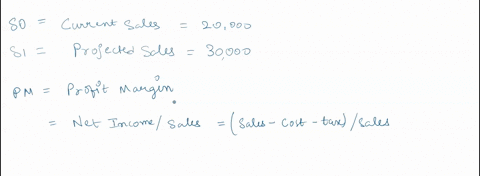 S0 = Current Sales = 20,000
S1 = Projected Sales = 30,000
PM = Profit Margin
= Net Income / Sales = (Sales - Cost - tax) / Sales